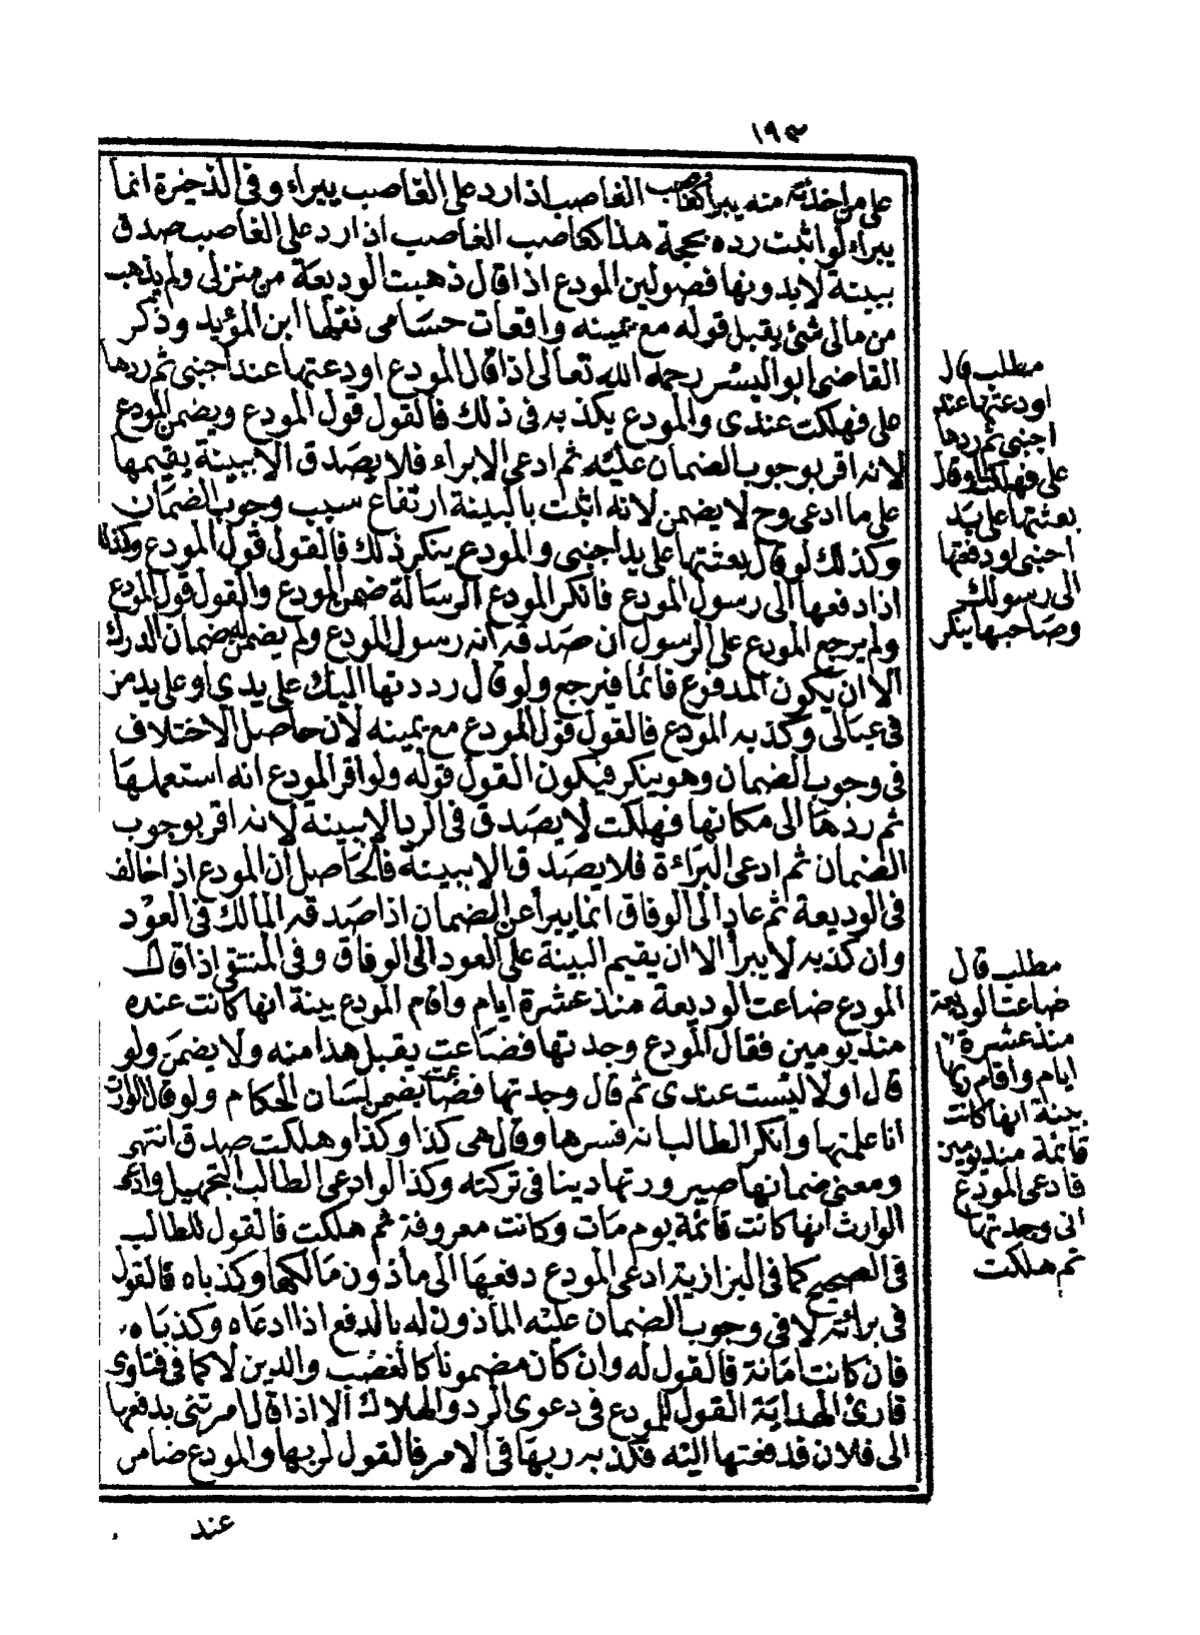 ١٩٣
على من اخذته منه يبرأ كغاصب الغاصب اذا رد على الغاصب يبراء وفى الذخيرة انما
يبراء لو اثبت رده بحجة هذا كغاصب الغاصب اذا رد على الغاصب صدق
ببينة لا بدونها فصولين المودع اذا قال ذهبت الوديعة من منزلى ولم يذهب
من مالى شئ يقبل قوله مع يمينه واقعات حسامى نقلها ابن المؤيد وذكر
القاضى ابو اليسر رحمه الله تعالى اذا قال المودع اودعتها عند اجنبى ثم ردها
على فهلكت عندى والمودع يكذبه فى ذلك فالقول قول المودع ويضمن المودع
لانه اقر بوجوب الضمان عليه ثم ادعى الابراء فلا يصدق الا ببينة يقيمها
على ما ادعى وح لا يضمن لانه اثبت بالبينة ارتفاع سبب وجوب الضمان
وكذلك لو قال بعثتها على يد اجنبى والمودع ينكر ذلك فالقول قول المودع وكذلك
اذا دفعها الى رسول المودع فانكر المودع الرسالة ضمن المودع والقول قول المودع
ولم يرجع المودع على الرسول ان صدقه انه رسول المودع ولم يضمن له ضمان الدرك
الا ان يكون المدفوع قائما فيرجع ولو قال رددتها اليك على يدى او على يد من
فى عيالى وكذبه المودع فالقول قول المودع مع يمينه لان حاصل الاختلاف
فى وجوب الضمان وهو ينكر فيكون القول قوله ولو اقر المودع انه استعملها
ثم ردها الى مكانها فهلكت لا يصدق فى الرد الا ببينة لانه اقر بوجوب
الضمان ثم ادعى البراءة فلا يصدق الا ببينة فالحاصل ان المودع اذا خالف
فى الوديعة ثم عاد الى الوفاق انما يبرأ عن الضمان اذا صدقه المالك فى العود
وان كذبه لا يبرأ الا ان يقيم البينة على العود الى الوفاق وفى المنتقى اذا قال
المودع ضاعت الوديعة منذ عشرة ايام واقام المودع بينة انها كانت عنده
منذ يومين فقال المودع وجدتها فضاعت يقبل هذا منه ولا يضمن ولو
قال اولا ليست عندى ثم قال وجدتها فضاعت يضمن لسان الحكام ولو قال الوارث
انا علمتها وانكر الطالب انه فسرها وقال هى كذا وكذا وهلكت صدق انتهى
ومعنى ضمانها صيرورتها دينا فى تركته وكذا لو ادعى الطالب التجهيل وادعى
الوارث انها كانت قائمة يوم مات وكانت معروفة ثم هلكت فالقول للطالب
فى الصحيح كما فى البزازية ادعى المودع دفعها الى مأذون مالكها وكذباه فالقول
فى برائته لا فى وجوب الضمان عليه المأذون له بالدفع اذا ادعاه وكذباه
فان كانت امانة فالقول له وان كان مضمونا كالغصب والدين لا كما فى فتاوى
قارئ الهداية القول للمودع فى دعوى الرد والهلاك الا اذا قال امرتنى بدفعها
الى فلان قد دفعتها اليه فكذبه ربها فى الامر فالقول لربها والمودع ضامن
عند
مطلب قال
اودعتها عند
اجنبى ثم ردها
على فهلكت او قال
بعثتها على يد
اجنبى او دفعتها
الى رسولك
وصاحبها ينكر
مطلب قال
ضاعت الوديعة
منذ عشرة
ايام واقام ربها
بينة انها كانت
قائمة منذ يومين
فادعى المودع
انى وجدتها
ثم هلكت